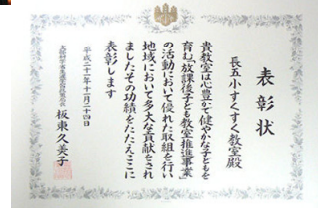 表彰状
長五小すくすく教室殿
貴教室は心豊かで健やかな子どもを
育む放課後子ども教室推進事業
の活動において優れた取組を行い
地域において多大な貢献をされ
ましたその功績をたたえここに
表彰します
平成二十一年十一月二十四日
文部科学省生涯学習政策局長
板東久美子